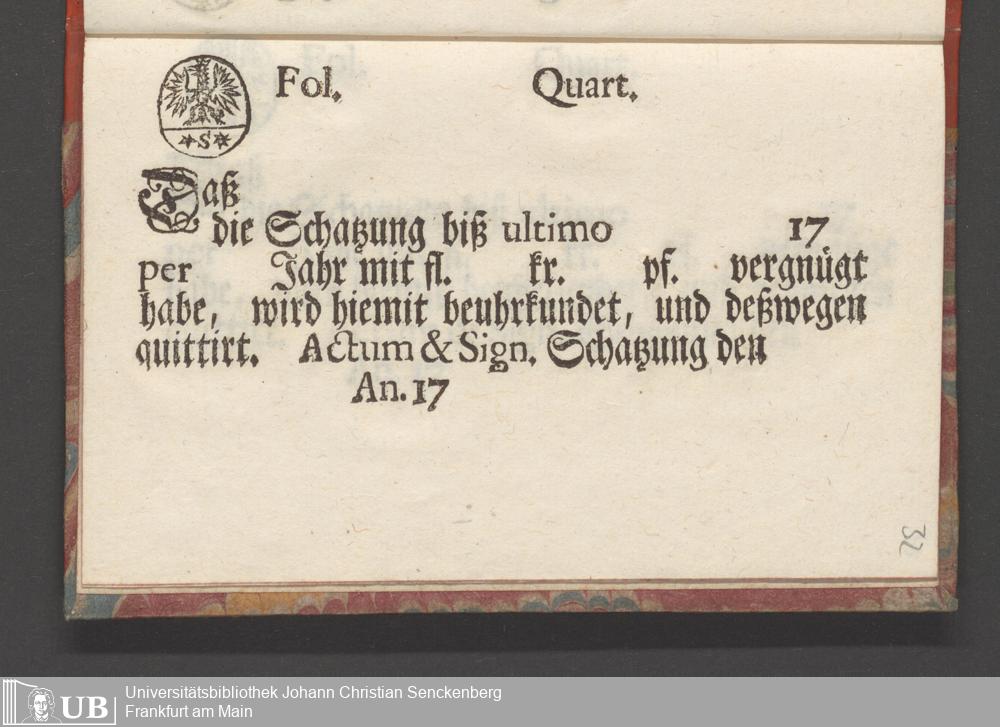 Fol. Quart.
*S*
Daß
die Schatzung biß ultimo 17
per Jahr mit fl. kr. pf. vergnügt
habe, wird hiemit beuhrkundet, und deßwegen
quittirt. Actum & Sign. Schatzung den
An. 17
32
UB Universitätsbibliothek Johann Christian Senckenberg
Frankfurt am Main